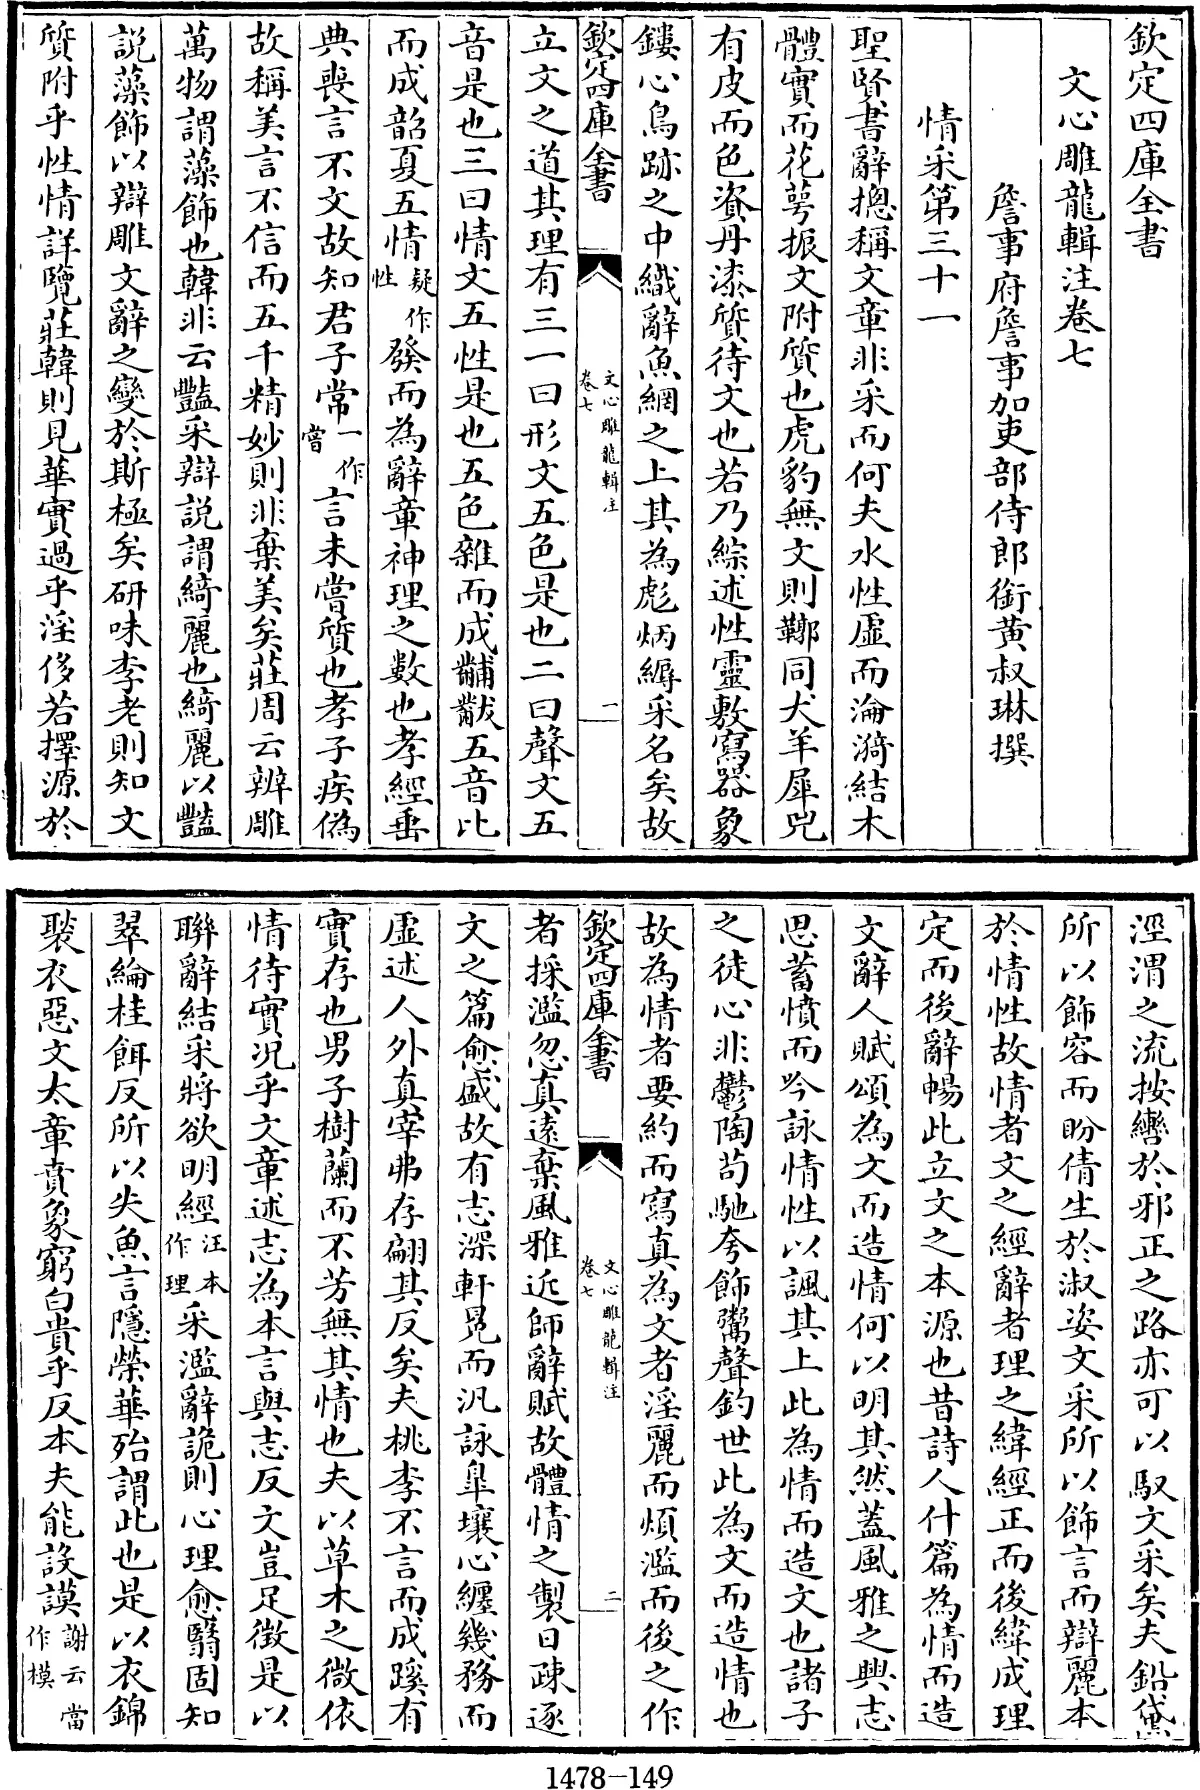 欽定四庫全書
文心雕龍輯注卷七
詹事府詹事加吏部侍郎銜黄叔琳撰
情采第三十一
聖賢書辭摠稱文章非采而何夫水性虛而淪漪結木
體實而花萼振文附質也虎豹無文則鞹同犬羊犀兕
有皮而色資丹漆質待文也若乃綜述性靈敷寫器象
鏤心鳥跡之中織辭魚網之上其為彪炳縟采名矣故
欽定四庫全書
文心雕龍輯注
卷七
一
立文之道其理有三一曰形文五色是也二曰聲文五
音是也三曰情文五性是也五色雜而成黼黻五音比
而成韶夏五情疑作性發而為辭章神理之數也孝經垂
典喪言不文故知君子常一作嘗言未嘗質也孝子疾偽
故稱美言不信而五千精妙則非棄美矣莊周云辨雕
萬物謂藻飾也韓非云豔采辯說謂綺麗也綺麗以豔
說藻飾以辯雕文辭之變於斯極矣研味李老則知文
質附乎性情詳覽莊韓則見華實過乎淫侈若擇源於
涇渭之流按轡於邪正之路亦可以馭文采矣夫鉛黛
所以飾容而盼倩生於淑姿文采所以飾言而辯麗本
於情性故情者文之經辭者理之緯經正而後緯成理
定而後辭暢此立文之本源也昔詩人什篇為情而造
文辭人賦頌為文而造情何以明其然蓋風雅之興志
思蓄憤而吟詠情性以諷其上此為情而造文也諸子
之徒心非鬱陶苟馳夸飾鬻聲釣世此為文而造情也
故為情者要約而寫真為文者淫麗而煩濫而後之作
欽定四庫全書
文心雕龍輯注
卷七
二
者採濫忽真遠棄風雅近師辭賦故體情之製日疎逐
文之篇愈盛故有志深軒冕而汎詠皐壤心纏幾務而
虛述人外真宰弗存翩其反矣夫桃李不言而成蹊有
實存也男子樹蘭而不芳無其情也夫以草木之微依
情待實况乎文章述志為本言與志反文豈足徵是以
聯辭結采將欲明經汪本作理采濫辭詭則心理愈翳固知
翠綸桂餌反所以失魚言隱榮華殆謂此也是以衣錦
褧衣惡文太章賁象窮白貴乎反本夫能設謨謝云當作模
1478—149